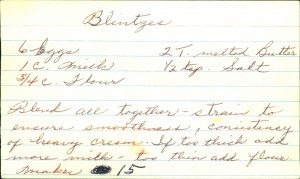 Blintzes
6 Eggs 2 T. melted Butter
1 C. Milk 1/2 tsp. Salt
3/4 c. Flour
Blend all together - strain to
ensure smoothness, consistency
of heavy cream. If too thick add
more milk - too thin add flour
Makes 15